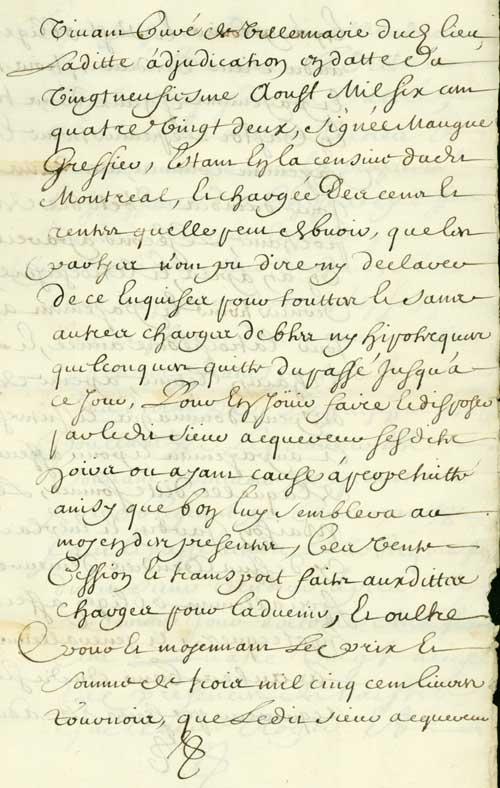 vivant Curé de Villemarie dud. lieu,
Laditte adjudication en datte du
vingtneufiesme Aoust Mil six cent
quatre vingt deux, signée Maugue
Greffier, Estant En la censive dudit
Montreal, Et chargée Des cens Et
rentes quelle peut debvoir, que les
parties n'ont pu dire ny declarer
de ce Enquises pour touttes Et sans
autres charges debtes ny hipotecques
quelconques quitte du passé Jusqu'a
ce Jour, Pour En Joüir faire Et disposer
par ledit sieur acquereur ses dits
hoirs ou ayant cause à propriette
ainsy que bon luy semblera au
moyen des presentes, Ces vente
Cession Et transport faits aux dittes
charges pour ladvenir, Et oultre
pour Et moyennant Le prix Et
somme de trois mil cinq cent livres
tournois, que Ledit sieur acquereur